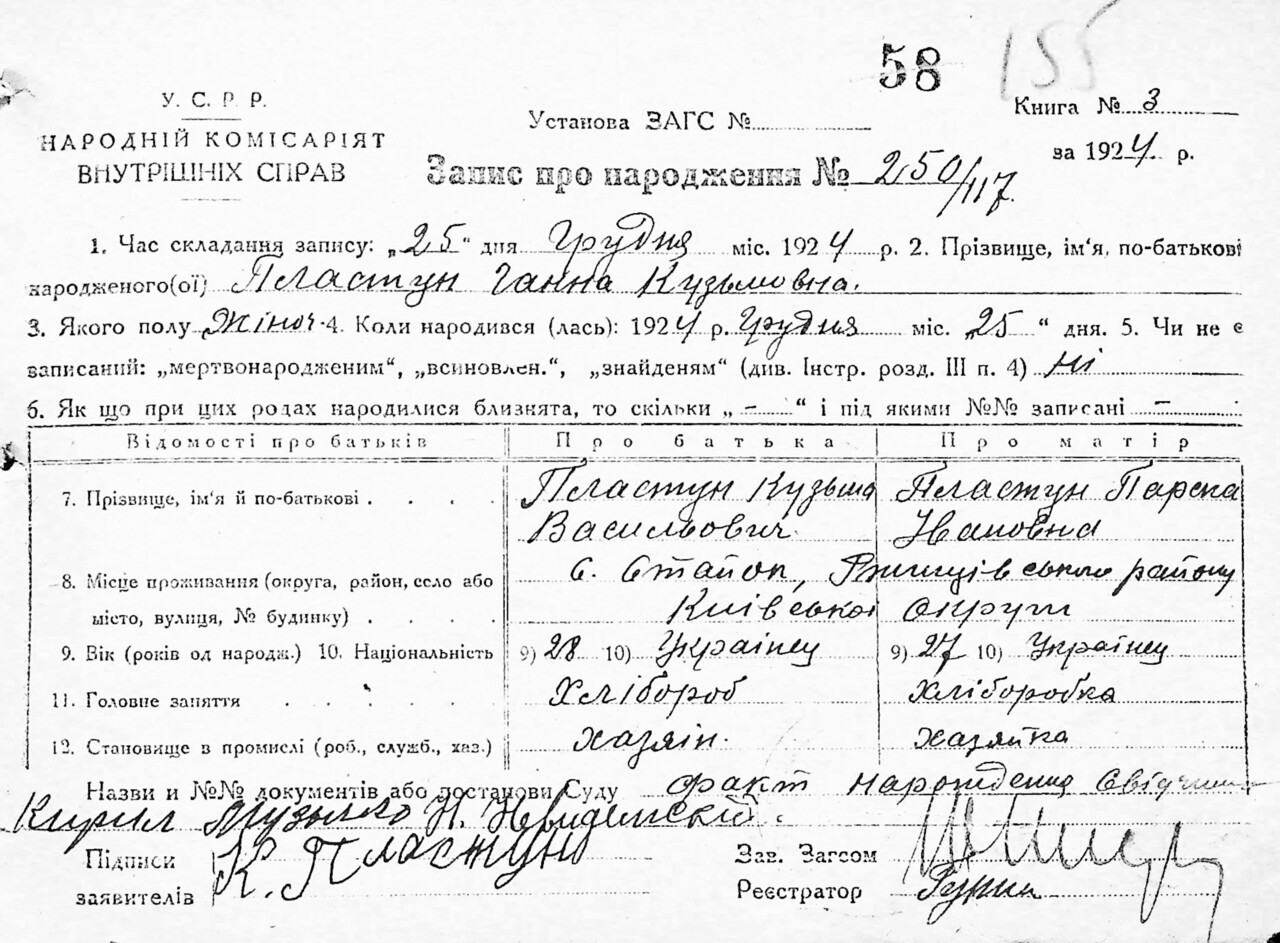 58 155
У. С. Р. Р.
НАРОДНІЙ КОМІСАРІЯТ
ВНУТРІШНІХ СПРАВ
Установа ЗАГС №
Книга № 3
за 1924 р.
Запис про народження № 250/117.
1. Час складання запису: „25“ дня Грудня міс. 1924 р. 2. Прізвище, ім'я, по-батькові
народженого(ої) Пластун Ганна Кузьмовна.
3. Якого полу Жіноч. 4. Коли народився (лась): 1924 р. Грудня міс. „25“ дня. 5. Чи не є
записаний: „мертвонародженим“, „всиновлен.“, „знайденям“ (див. Інстр. розд. III п. 4) Ні
6. Як що при цих родах народилися близнята, то скільки „ - “ і під якими №№ записані -
Відомості про батьків Про батька Про матір
7. Прізвище, ім'я й по-батькові . . . . Пластун Кузьма Пластун Параска
Васильович. Ивановна
8. Місце проживання (округа, район, село або с. Стайок, Ржищівського району
місто, вулиця, № будинку) . . . . Київської округи
9. Вік (років од народж.) 10. Національність 9) 28 10) Українец 9) 27 10) Українец
11. Головне заняття . . . . . Хлібороб Хлібробка
12. Становище в промислі (роб., служб., хаз.) хазяін. хазяйка
Назви и №№ документів або постанови Суду факт нарождения свідчили
Кирил Н.
Підписи К. Пластун
заявителів
Зав. Загсом
Реєстратор